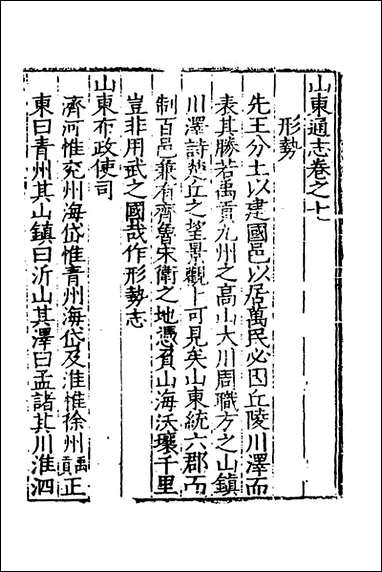 山東通志卷之七
形勢
先王分土以建國邑以居萬民必因丘陵川澤而
表其勝若禹貢九州之高山大川周職方之山鎮
川澤詩楚丘之望景觀卜可見矣山東統六郡而
制百邑兼有齊魯宋衛之地憑負山海沃壤千里
豈非用武之國哉作形勢志
山東布政使司
濟河惟兗州海岱惟青州海岱及淮惟徐州禹貢正
東曰青州其山鎮曰沂山其澤曰孟諸其川淮泗